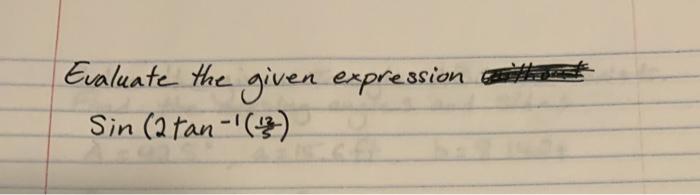 Evaluate the given expression
Sin (2tan⁻¹(12/5)